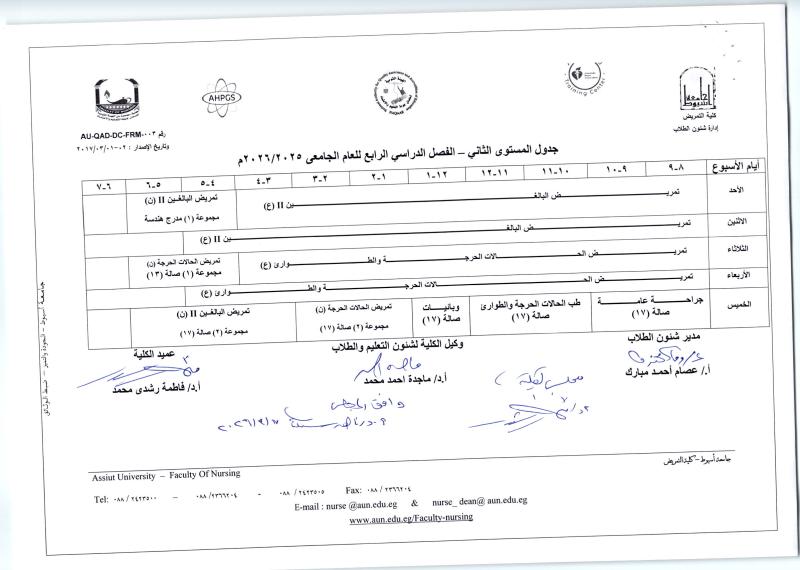 جامعة أسيوط
كلية التمريض
إدارة شئون الطلاب
Training Center
AHPGS
رقم AU-QAD-DC-FRM-٠٠٣
وتاريخ الإصدار : ٠٢-٠١/٠٣/٢٠١٧
جدول المستوى الثاني – الفصل الدراسي الرابع للعام الجامعى ٢٠٢٦/٢٠٢٥م
أيام الأسبوع ٨-٩ ٩-١٠ ١٠-١١ ١١-١٢ ١٢-١ ١-٢ ٢-٣ ٣-٤ ٤-٥ ٥-٦ ٦-٧
الأحد تمريض البالغين II (ع) تمريض البالغين II (ن)
مجموعة (١) مدرج هندسة
الاثنين تمريض البالغين II (ع)
الثلاثاء تمريض الحالات الحرجة والطوارئ (ع) تمريض الحالات الحرجة (ن)
مجموعة (١) صالة (١٣)
الأربعاء تمريض الحالات الحرجة والطوارئ (ع)
الخميس جراحة عامة طب الحالات الحرجة والطوارئ وبائيات تمريض الحالات الحرجة (ن) تمريض البالغين II (ن)
صالة (١٧) صالة (١٧) صالة (١٧) مجموعة (٢) صالة (١٧) مجموعة (٢) صالة (١٧)
مدير شئون الطلاب وكيل الكلية لشئون التعليم والطلاب عميد الكلية
أ/ عصام أحمد مبارك أ.د/ ماجدة احمد محمد أ.د/ فاطمة رشدى محمد
جامعة أسيوط – الجودة والتميز – ضبط الوثائق
جامعة أسيوط – كلية التمريض
Assiut University – Faculty Of Nursing
Tel: ٠٨٨ / ٢٤٢٣٥٠٠ – ٠٨٨ /٢٣٦٦٢٠٤ - ٠٨٨ / ٢٤٢٣٥٠٥ Fax: ٠٨٨ / ٢٣٦٦٢٠٤
E-mail : nurse @aun.edu.eg & nurse_ dean@ aun.edu.eg
www.aun.edu.eg/Faculty-nursing